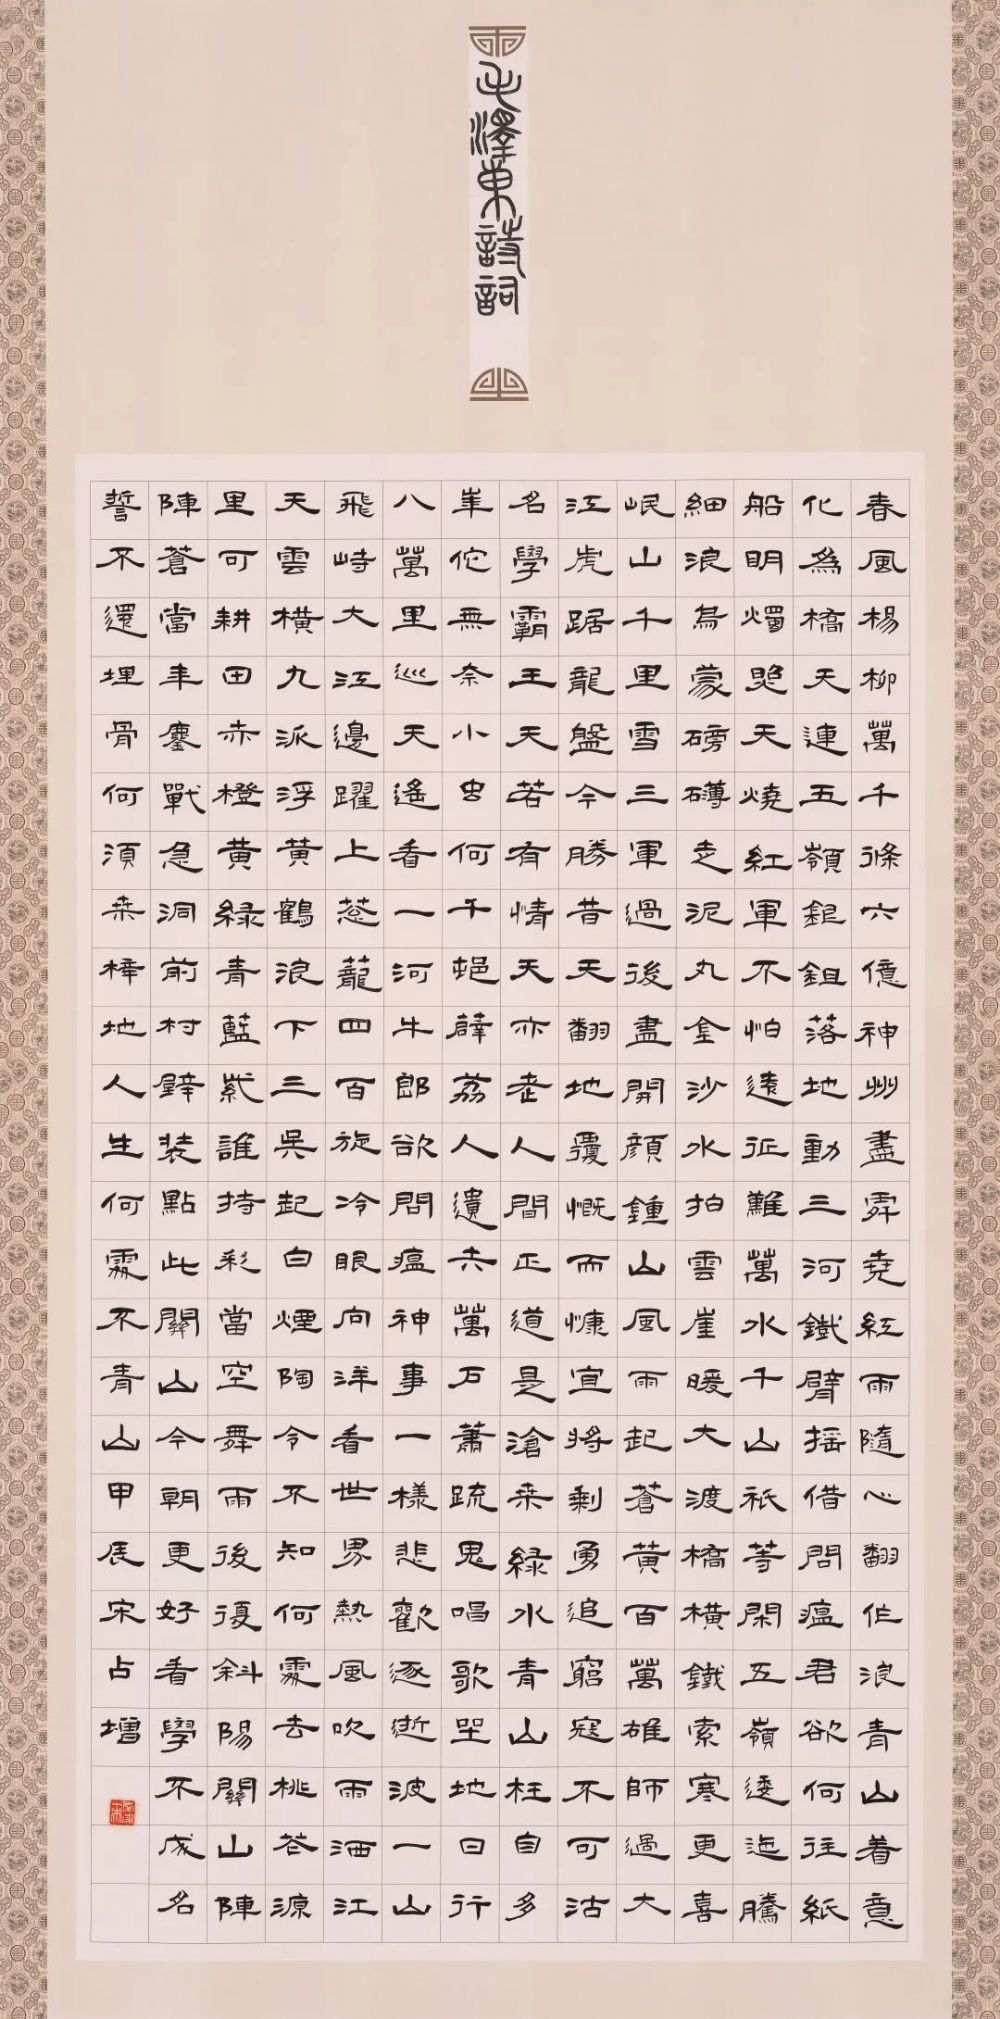 毛澤東詩詞
春風楊柳萬千條六億神州盡舜堯紅雨隨心翻作浪青山着意
化為橋天連五嶺銀鉏落地動三河鐵臂搖借問瘟君欲何往紙
船明燭照天燒紅軍不怕遠征難萬水千山祇等閑五嶺逶迤騰
細浪烏蒙磅礴走泥丸金沙水拍雲崖暖大渡橋橫鐵索寒更喜
岷山千里雪三軍過後盡開顏鍾山風雨起蒼黃百萬雄師過大
江虎踞龍盤今勝昔天翻地覆慨而慷宜將剩勇追窮寇不可沽
名學霸王天若有情天亦老人間正道是滄桒綠水青山枉自多
峯佗無奈小虫何千邨薜荔人遺矢萬戶蕭疏鬼唱歌坐地日行
八萬里巡天遙看一河牛郎欲問瘟神事一樣悲歡逐逝波一山
飛峙大江邊躍上蔥蘢四百旋冷眼向洋看世界熱風吹雨洒江
天雲橫九派浮黃鶴浪下三吳起白煙陶令不知何處去桃花源
里可耕田赤橙黃綠青藍紫誰持彩當空舞雨後復斜陽關山陣
陣蒼當年鏖戰急洞前村壁裝點此關山今朝更好看學不成名
誓不還埋骨何須桒梓地人生何處不青山甲辰宋占增